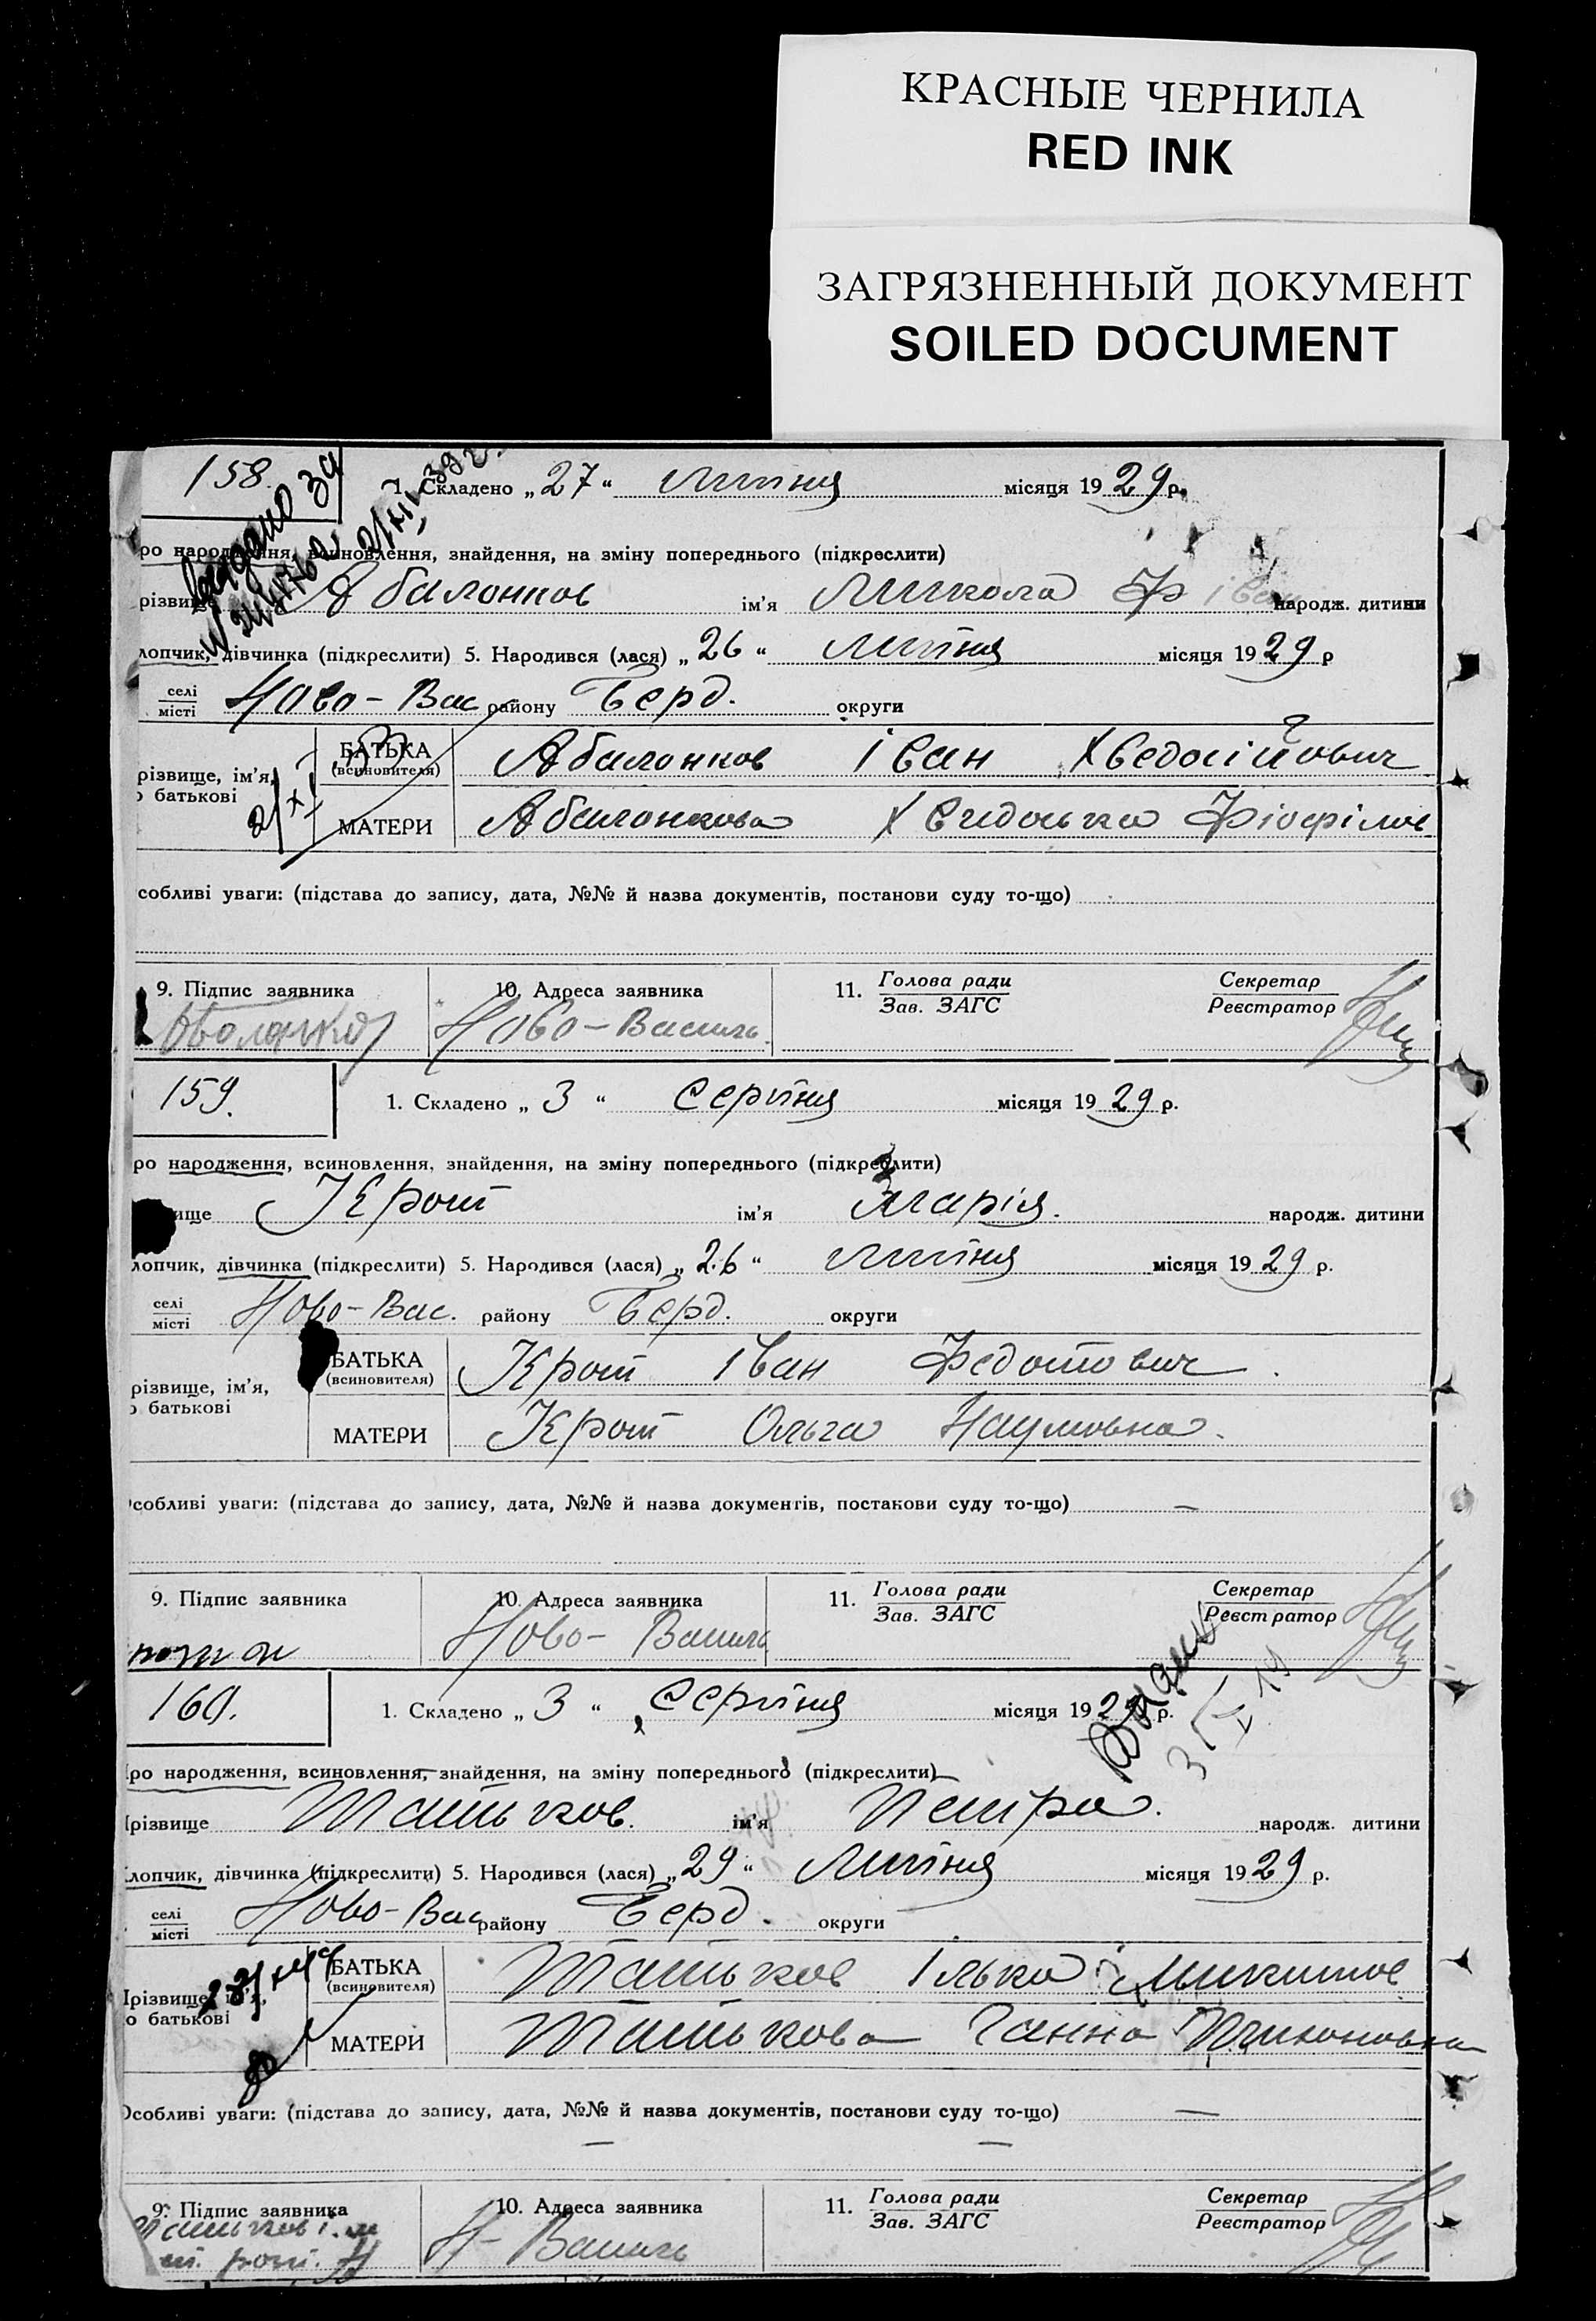 КРАСНЫЕ ЧЕРНИЛА
RED INK
ЗАГРЯЗНЕННЫЙ ДОКУМЕНТ
SOILED DOCUMENT
158. 1. Складено „ 27 “ Липня місяця 19 29 р.
ро народження, всиновлення, знайдення, на зміну попереднього (підкреслити)
різвище Абалонков ім'я Микола народж. дитини
лопчик, дівчинка (підкреслити) 5. Народився (лася) „ 26 “ Липня місяця 19 29 р
селі
місті Ново-Вас району Берд. округи
різвище, ім'я,
о батькові
БАТЬКА
(всиновителя) Абалонков Іван Хведосійович
МАТЕРИ Абалонкова
собливі уваги: (підстава до запису, дата, №№ й назва документів, постанови суду то-що)
9. Підпис заявника 10. Адреса заявника 11. Голова ради Секретар
Зав. ЗАГС Реєстратор
Ново-Василь
159. 1. Складено „ 3 “ Серпня місяця 19 29 р.
ро народження, всиновлення, знайдення, на зміну попереднього (підкреслити)
ище Крот ім'я Марія. народж. дитини
лопчик, дівчинка (підкреслити) 5. Народився (лася) „ 26 “ Липня місяця 19 29 р.
селі
місті Ново-Вас. району Берд. округи
різвище, ім'я,
о батькові
БАТЬКА
(всиновителя) Крот Іван Федотович
МАТЕРИ Крот Ольга Наумовна.
собливі уваги: (підстава до запису, дата, №№ й назва документів, постанови суду то-що) —
9. Підпис заявника 10. Адреса заявника 11. Голова ради Секретар
Зав. ЗАГС Реєстратор
Ново- Василь
160. 1. Складено „ 3 “ Серпня місяця 19 29 р.
ро народження, всиновлення, знайдення, на зміну попереднього (підкреслити)
різвище Татьков. ім'я Петро. народж. дитини
лопчик, дівчинка (підкреслити) 5. Народився (лася) „ 29 “ Липня місяця 19 29 р.
селі
місті Ново-Вас району Берд. округи
різвище, ім'я,
о батькові
БАТЬКА
(всиновителя) Татьков Ілько Микитов
МАТЕРИ Татькова Ганна
Особливі уваги: (підстава до запису, дата, №№ й назва документів, постанови суду то-що) —
— —
9. Підпис заявника 10. Адреса заявника 11. Голова ради Секретар
Зав. ЗАГС Реєстратор
Н- Василь